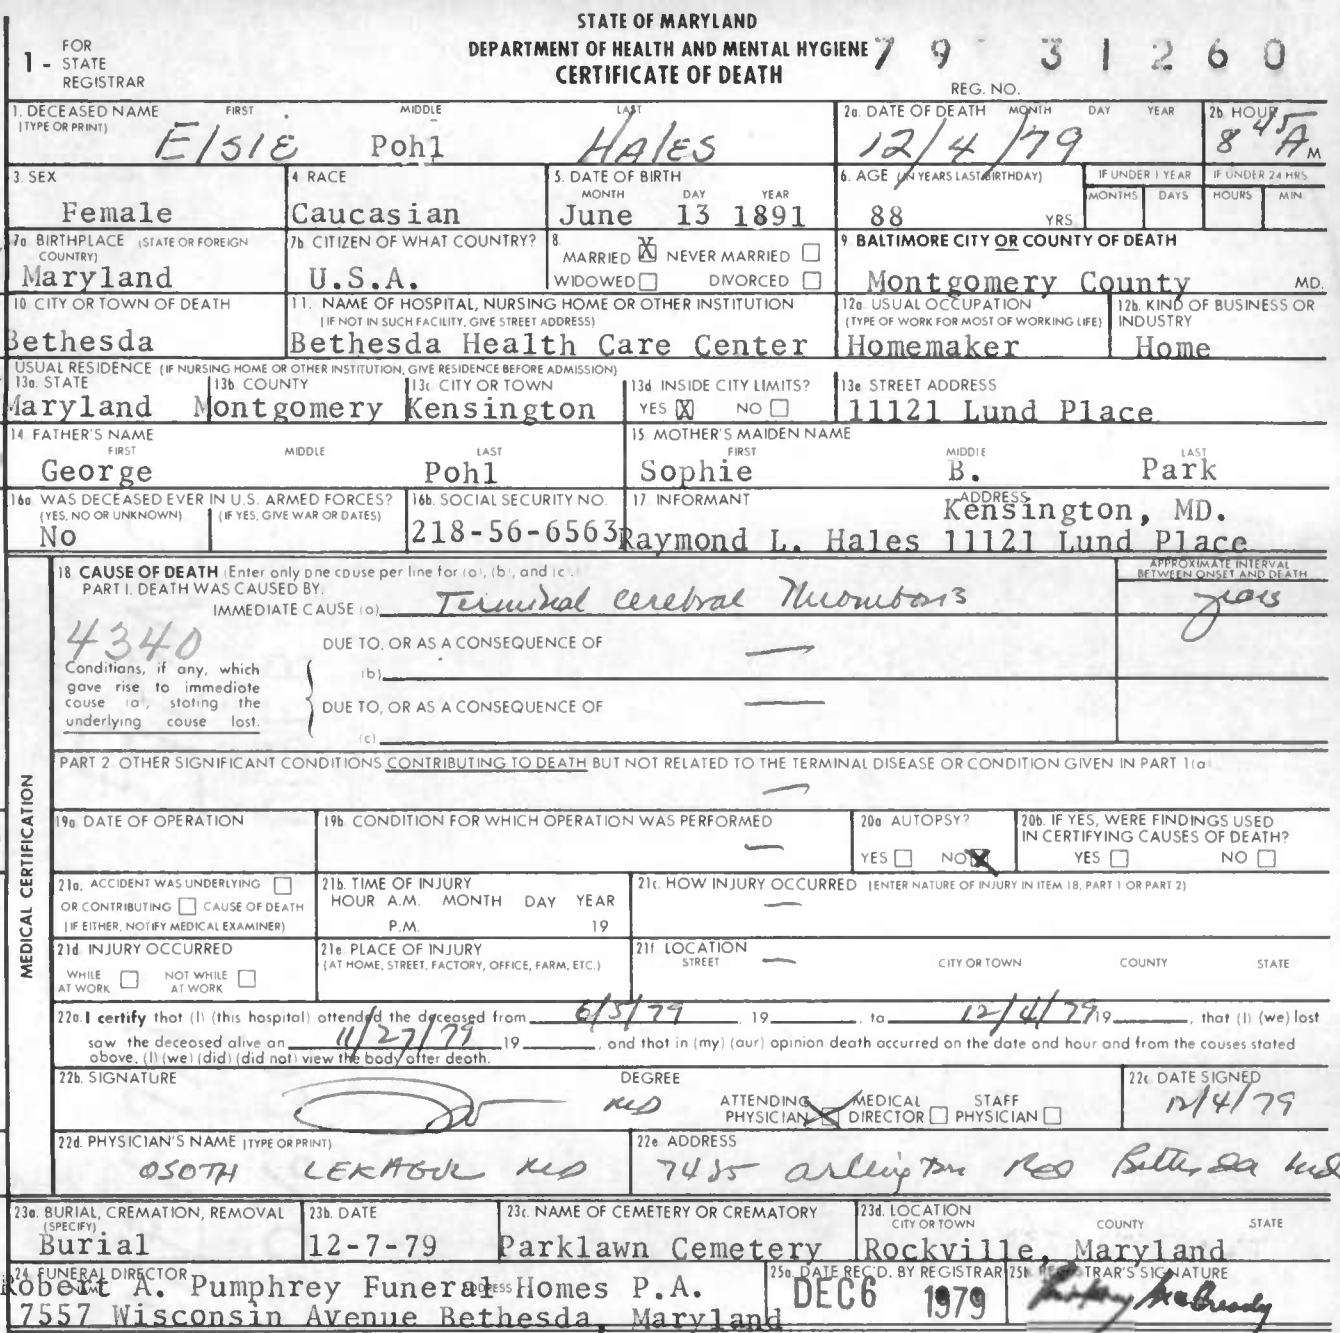 STATE OF MARYLAND
DEPARTMENT OF HEALTH AND MENTAL HYGIENE
CERTIFICATE OF DEATH
1 - FOR STATE REGISTRAR
79 31260
REG. NO.
1. DECEASED NAME (TYPE OR PRINT) FIRST MIDDLE LAST
Elsie Pohl Hales
2a. DATE OF DEATH MONTH DAY YEAR
12/4/79
2b. HOUR
8 45 A M
3. SEX
Female
4. RACE
Caucasian
5. DATE OF BIRTH MONTH DAY YEAR
June 13 1891
6. AGE (IN YEARS LAST BIRTHDAY)
88 YRS
IF UNDER 1 YEAR MONTHS DAYS
IF UNDER 24 HRS HOURS MIN.
7a. BIRTHPLACE (STATE OR FOREIGN COUNTRY)
Maryland
7b. CITIZEN OF WHAT COUNTRY?
U.S.A.
8. MARRIED X NEVER MARRIED
WIDOWED DIVORCED
9. BALTIMORE CITY OR COUNTY OF DEATH
Montgomery County MD.
10. CITY OR TOWN OF DEATH
Bethesda
11. NAME OF HOSPITAL, NURSING HOME OR OTHER INSTITUTION
(IF NOT IN SUCH FACILITY, GIVE STREET ADDRESS)
Bethesda Health Care Center
12a. USUAL OCCUPATION
(TYPE OF WORK FOR MOST OF WORKING LIFE)
Homemaker
12b. KIND OF BUSINESS OR INDUSTRY
Home
USUAL RESIDENCE (IF NURSING HOME OR OTHER INSTITUTION, GIVE RESIDENCE BEFORE ADMISSION)
13a. STATE
Maryland
13b. COUNTY
Montgomery
13c. CITY OR TOWN
Kensington
13d. INSIDE CITY LIMITS?
YES X NO
13e. STREET ADDRESS
11121 Lund Place
14. FATHER'S NAME FIRST MIDDLE LAST
George Pohl
15. MOTHER'S MAIDEN NAME FIRST MIDDLE LAST
Sophie B. Park
16a. WAS DECEASED EVER IN U.S. ARMED FORCES?
(YES, NO OR UNKNOWN) (IF YES, GIVE WAR OR DATES)
No
16b. SOCIAL SECURITY NO.
218-56-6563
17. INFORMANT ADDRESS
Kensington, MD.
Raymond L. Hales 11121 Lund Place
MEDICAL CERTIFICATION
18. CAUSE OF DEATH (Enter only one cause per line for (a), (b), and (c).)
APPROXIMATE INTERVAL BETWEEN ONSET AND DEATH
PART I. DEATH WAS CAUSED BY:
IMMEDIATE CAUSE (a) Terminal cerebral Thrombosis years
4340
DUE TO, OR AS A CONSEQUENCE OF —
(b)
Conditions, if any, which gave rise to immediate cause (a), stating the underlying cause last.
DUE TO, OR AS A CONSEQUENCE OF —
(c)
PART 2. OTHER SIGNIFICANT CONDITIONS CONTRIBUTING TO DEATH BUT NOT RELATED TO THE TERMINAL DISEASE OR CONDITION GIVEN IN PART 1(a)
—
19a. DATE OF OPERATION
19b. CONDITION FOR WHICH OPERATION WAS PERFORMED
—
20a. AUTOPSY?
YES NO X
20b. IF YES, WERE FINDINGS USED IN CERTIFYING CAUSES OF DEATH?
YES NO
21a. ACCIDENT WAS UNDERLYING
OR CONTRIBUTING CAUSE OF DEATH
(IF EITHER, NOTIFY MEDICAL EXAMINER)
21b. TIME OF INJURY
HOUR A.M. MONTH DAY YEAR
P.M. 19
21c. HOW INJURY OCCURRED (ENTER NATURE OF INJURY IN ITEM 18, PART 1 OR PART 2)
—
21d. INJURY OCCURRED
WHILE AT WORK NOT WHILE AT WORK
21e. PLACE OF INJURY
(AT HOME, STREET, FACTORY, OFFICE, FARM, ETC.)
21f. LOCATION STREET CITY OR TOWN COUNTY STATE
—
22a. I certify that (I) (this hospital) attended the deceased from 6/5/79, 19, to 12/4/79 19, that (I) (we) last
saw the deceased alive on 11/27/79 19, and that in (my) (our) opinion death occurred on the date and hour and from the causes stated
above, (I) (we) (did) (did not) view the body after death.
22b. SIGNATURE DEGREE
MD
ATTENDING PHYSICIAN X MEDICAL DIRECTOR STAFF PHYSICIAN
22c. DATE SIGNED
12/4/79
22d. PHYSICIAN'S NAME (TYPE OR PRINT)
OSOTH LEKAGUL MD
22e. ADDRESS
7435 Arlington Rd Bethesda Md
23a. BURIAL, CREMATION, REMOVAL (SPECIFY)
Burial
23b. DATE
12-7-79
23c. NAME OF CEMETERY OR CREMATORY
Parklawn Cemetery
23d. LOCATION CITY OR TOWN COUNTY STATE
Rockville, Maryland
24. FUNERAL DIRECTOR
Robert A. Pumphrey Funeral Homes P.A.
7557 Wisconsin Avenue Bethesda, Maryland
25a. DATE REC'D. BY REGISTRAR
DEC 6 1979
25b. REGISTRAR'S SIGNATURE